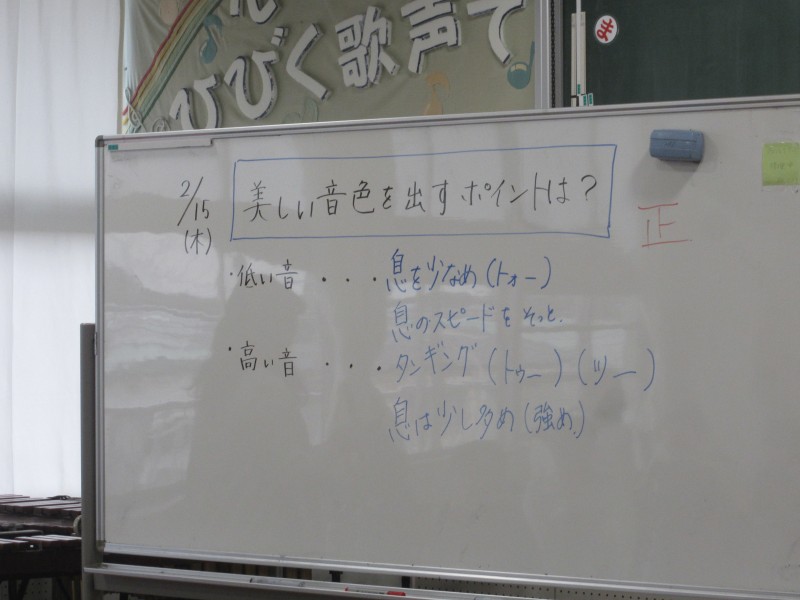 ひびく歌声で
2/15
(木)
美しい音色を出すポイントは?
正
・低い音 ・・・息を少なめ(トォー)
息のスピードをそっと.
・高い音 ・・・タンギング(トゥー)(ツー)
息は少し多め(強め.)